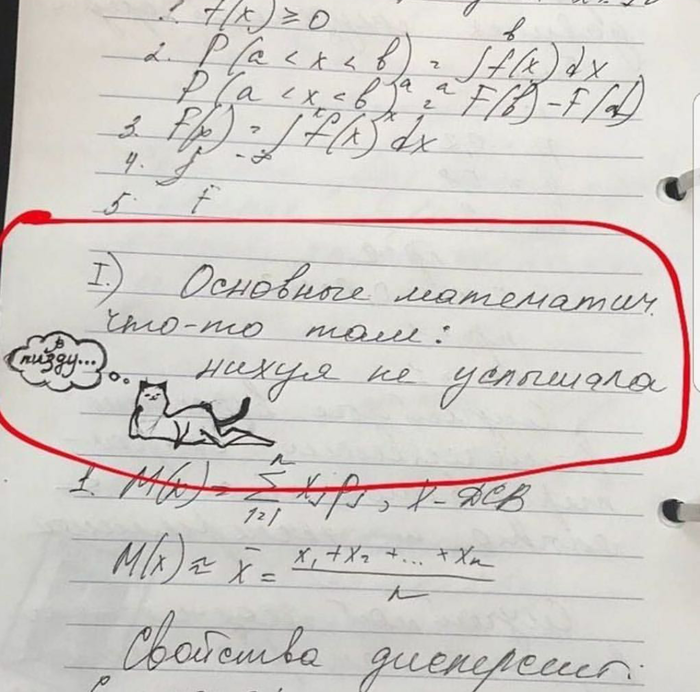 f(x) ≥ 0
2. P(a < x < b) = ∫ₐᵇ f(x) dx
P(a < x < b) = F(b) - F(a)
3. F(x) = ∫₋∞ˣ f(x) dx
4. f
5. F
I.) Основные математич.
что-то там:
нихуя не услышала
в
пизду...
1. M(x) = Σⁿⱼ₌₁ xⱼpⱼ, X - ДСВ
M(x) ≈ x̄ = (x₁ + x₂ + ... + xₙ)/n
Свойства дисперсии: